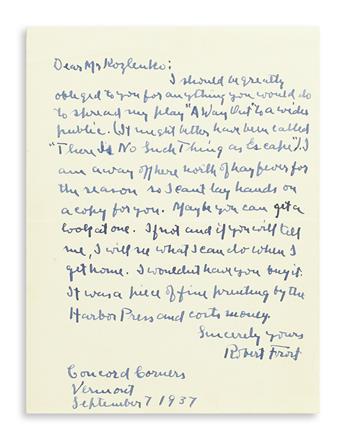 Dear Mr Kozlenko:
I should be greatly
obliged to you for anything you would do
to spread my play "A Way Out" to a wider
public. (It might better have been called
"There Is No Such Thing as Escape"). I
am away off here north of hay fever for
the season so I cant lay hands on
a copy for you. Maybe you can get a
look at one. If not and if you will tell
me, I will see what I can do when I
get home. I wouldnt have you buy it.
It was a piece of fine printing by the
Harbor Press and costs money.
Sincerely yours
Robert Frost
Concord Corners
Vermont
September 7 1937